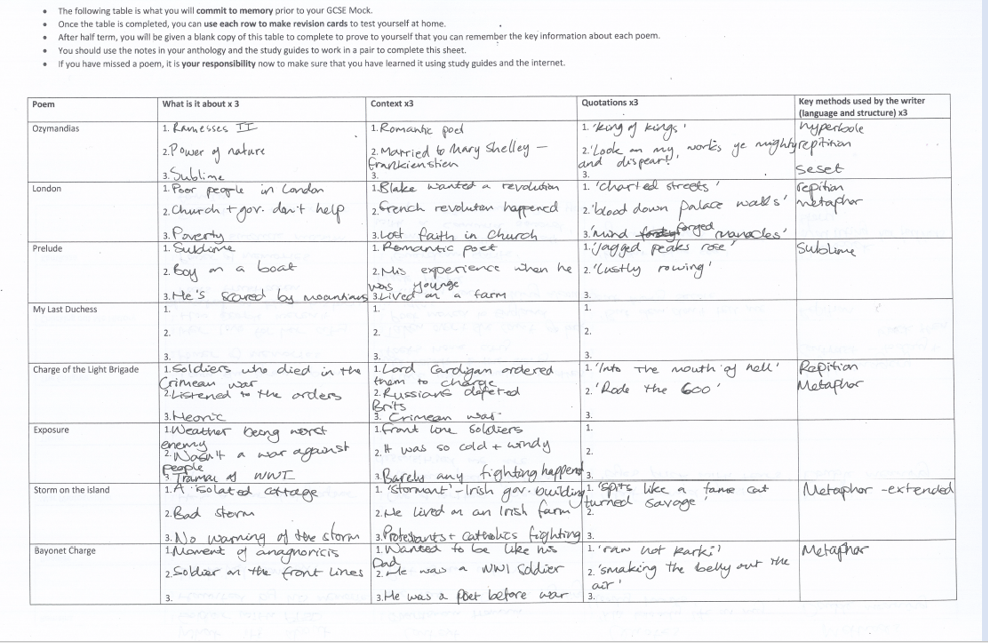 • The following table is what you will commit to memory prior to your GCSE Mock.
• Once the table is completed, you can use each row to make revision cards to test yourself at home.
• After half term, you will be given a blank copy of this table to complete to prove to yourself that you can remember the key information about each poem.
• You should use the notes in your anthology and the study guides to work in a pair to complete this sheet.
• If you have missed a poem, it is your responsibility now to make sure that you have learned it using study guides and the internet.
Poem
What is it about x 3
Context x3
Quotations x3
Key methods used by the writer
(language and structure) x3
Ozymandias
1. Ramesses II
2. Power of nature
3. Sublime
1. Romantic poet
2. Married to Mary Shelley –
Frankienstien
3.
1. 'king of kings'
2. 'Look on my works ye mighty
and dispear!'
3.
hyperbole
repitition
seset
London
1. Poor people in London
2. Church + gov. don't help
3. Poverty
1. Blake wanted a revolution
2. French revolution happened
3. Lost faith in Church
1. 'charted streets'
2. 'blood down palace walls'
3. 'mind forged manacles'
repition
metaphor
Prelude
1. Sublime
2. Boy on a boat
3. He's scared by mountians
1. Romantic poet
2. His experience when he
was younge
3. Lived on a farm
1. 'jagged peaks rose'
2. 'lustly rowing'
3.
Sublime
My Last Duchess
1.
2.
3.
1.
2.
3.
1.
2.
3.
Charge of the Light Brigade
1. Soldiers who died in the
Crimean war
2. Listened to the orders
3. Heoric
1. Lord Cardigan ordered
them to charge
2. Russians defeted
Brits
3. Crimean war
1. 'Into The mouth of hell'
2. 'Rode the 600'
3.
Repition
Metaphor
Exposure
1. Weather being worst
enemy
2. Wasn't a war against
people
3. Tramar of WWI
1. Front line soldiers
2. It was so cold + windy
3. Barely any fighting happend
1.
2.
3.
Storm on the Island
1. A isolated cottage
2. Bad storm
3. No warning of the storm
1. 'stormont' - Irish gov. building
2. He lived on an Irish farm
3. Protestants + catholics fighting
1. 'Spits like a tame cat
turned savage'
2.
3.
Metaphor - extended
Bayonet Charge
1. Moment of anagnoricis
2. Soldier on the front lines
3.
1. Wanted to be like his
Dad
2. He was a WWI soldier
3. He was a Poet before war
1. 'raw hot karki'
2. 'smaking the belly out the
air'
3.
Metaphor